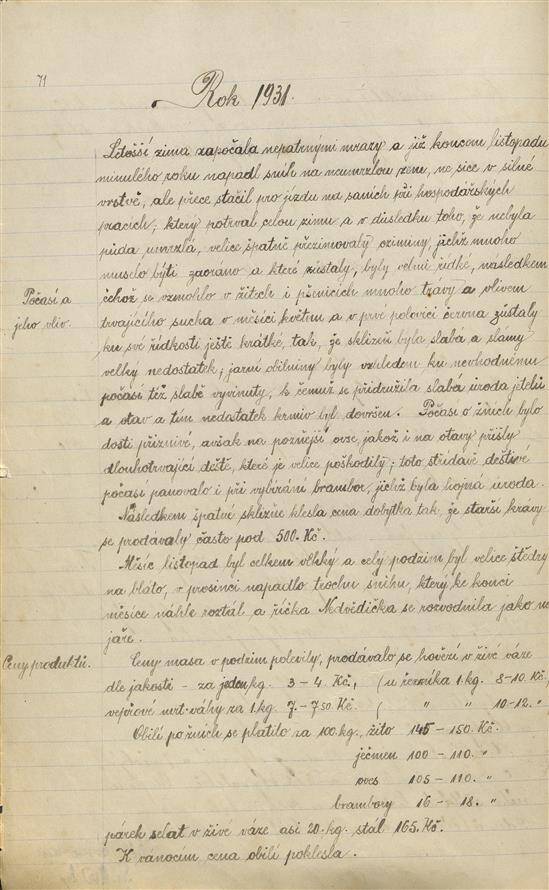 71
Rok 1931.
Letošší zima započala nepatrnými mrazy a již koncem listopadu
minulého roku napadl sníh na neumrzlou zem, ne sice v silné
vrstvě, ale přece stačil pro jízdu na saních při hospodářských
pracích, který potrval celou zimu a v důsledku toho, že nebyla
půda umrzlá, velice špatně přezimovaly oziminy, jichž mnoho
muselo býti zaoráno a které zůstaly, byly velmi řídké, následkem
Počasí a
jeho vliv.
čehož se vzmohlo v žitech i pšenicích mnoho trávy a vlivem
trvajícího sucha v měsíci květnu a v prvé polovici června zůstaly
ku své řídkosti ještě krátké, tak, že sklizeň byla slabá a slámy
velký nedostatek; jarní obilniny byly vzhledem ku nevhodnému
počasí též slabě vyvinuty, k čemuž se přidružila slabá úroda jetelů
a otav a tím nedostatek krmiv byl dovršen. Počasí o žních bylo
dosti příznivé, avšak na poznější ovse, jakož i na otavy přišly
dlouhotrvající deště, které je velice poškodily; toto střídavě deštivé
počasí panovalo i při vybírání brambor, jichž byla hojná úroda.
Následkem špatné sklizně klesla cena dobytka tak, že starší krávy
se prodávaly často pod 500.Kč.
Měsíc listopad byl celkem vlhký a celý podzim byl velice štědrý
na bláto, v prosinci napadlo trochu sněhu, který ke konci
měsíce náhle roztál a říčka Nedvědička se rozvodnila jako na
jaře.
Ceny produktů.
Ceny masa v podzim polevily, prodávalo se hovězí v živé váze
dle jakosti – za jeden kg. 3 – 4 Kč., (u řezníka 1. kg. 8–10. Kč.,
vepřové mrt. váhy za 1. kg. 7.– 7.50 Kč. ( " " 10–12. ")
Obilí po žních se platilo za 100. kg., žito 145 – 150. Kč.
ječmen 100 – 110. "
oves 105 – 110. "
brambory 16 – 18. "
párek selat v živé váze asi 20. kg. stál 165. Kč.
K vánocím cena obilí poklesla.